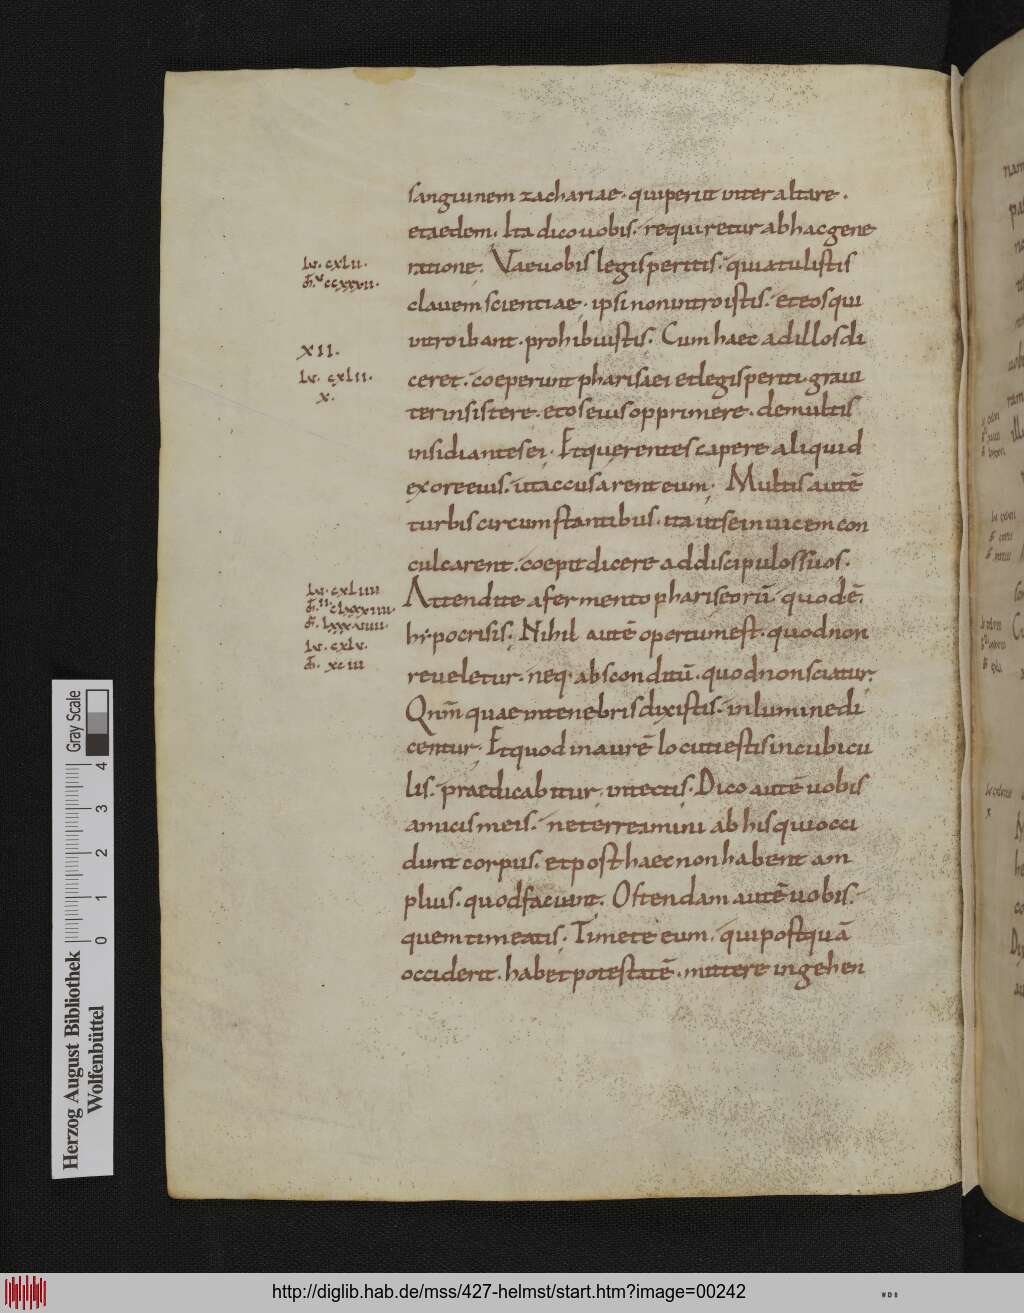 sanguinem zachariae. qui periit inter altare.
et aedem. Ita dico uobis. requiretur ab hac gene
lu. cxlii.
ratione. Vae uobis legisperitis. quia tulistis
clauem scientiae. ipsi non introistis. et eos qui
introibant. prohibuistis. Cum haec ad illos di
XII.
lu. cxlii.
x.
ceret. coeperunt pharisaei et legisperiti. graui
ter insistere. et os eius opprimere. de multis
insidiantes ei. Et querentes capere aliquid
ex ore eius. ut accusarent eum. Multis autē
turbis circumstantibus. ita ut se inuicem con
culcarent. coepit dicere ad discipulos suos.
lu. cxliiii
Attendite a fermento phariseorū quod ē.
hypocrisis. Nihil autē opertum est. quod non
lu. cxlv.
m̄. xciii
reueletur. neq· absconditū. quod non sciatur.
Qnm̄ quae in tenebris dixistis. in lumine di
centur. Et quod in aurē locuti estis in cubicu
lis. praedicabitur in tectis. Dico autē uobis
amicis meis. ne terreamini ab his qui occi
dunt corpus. et post haec non habent am
plius. quod faciunt. Ostendam autē uobis.
quem timeatis. Timete eum. qui postquā
occiderit. habet potestatē. mittere in gehen
Gray Scale
4 3 2 1 0
Herzog August Bibliothek
Wolfenbüttel
http://diglib.hab.de/mss/427-helmst/start.htm?image=00242